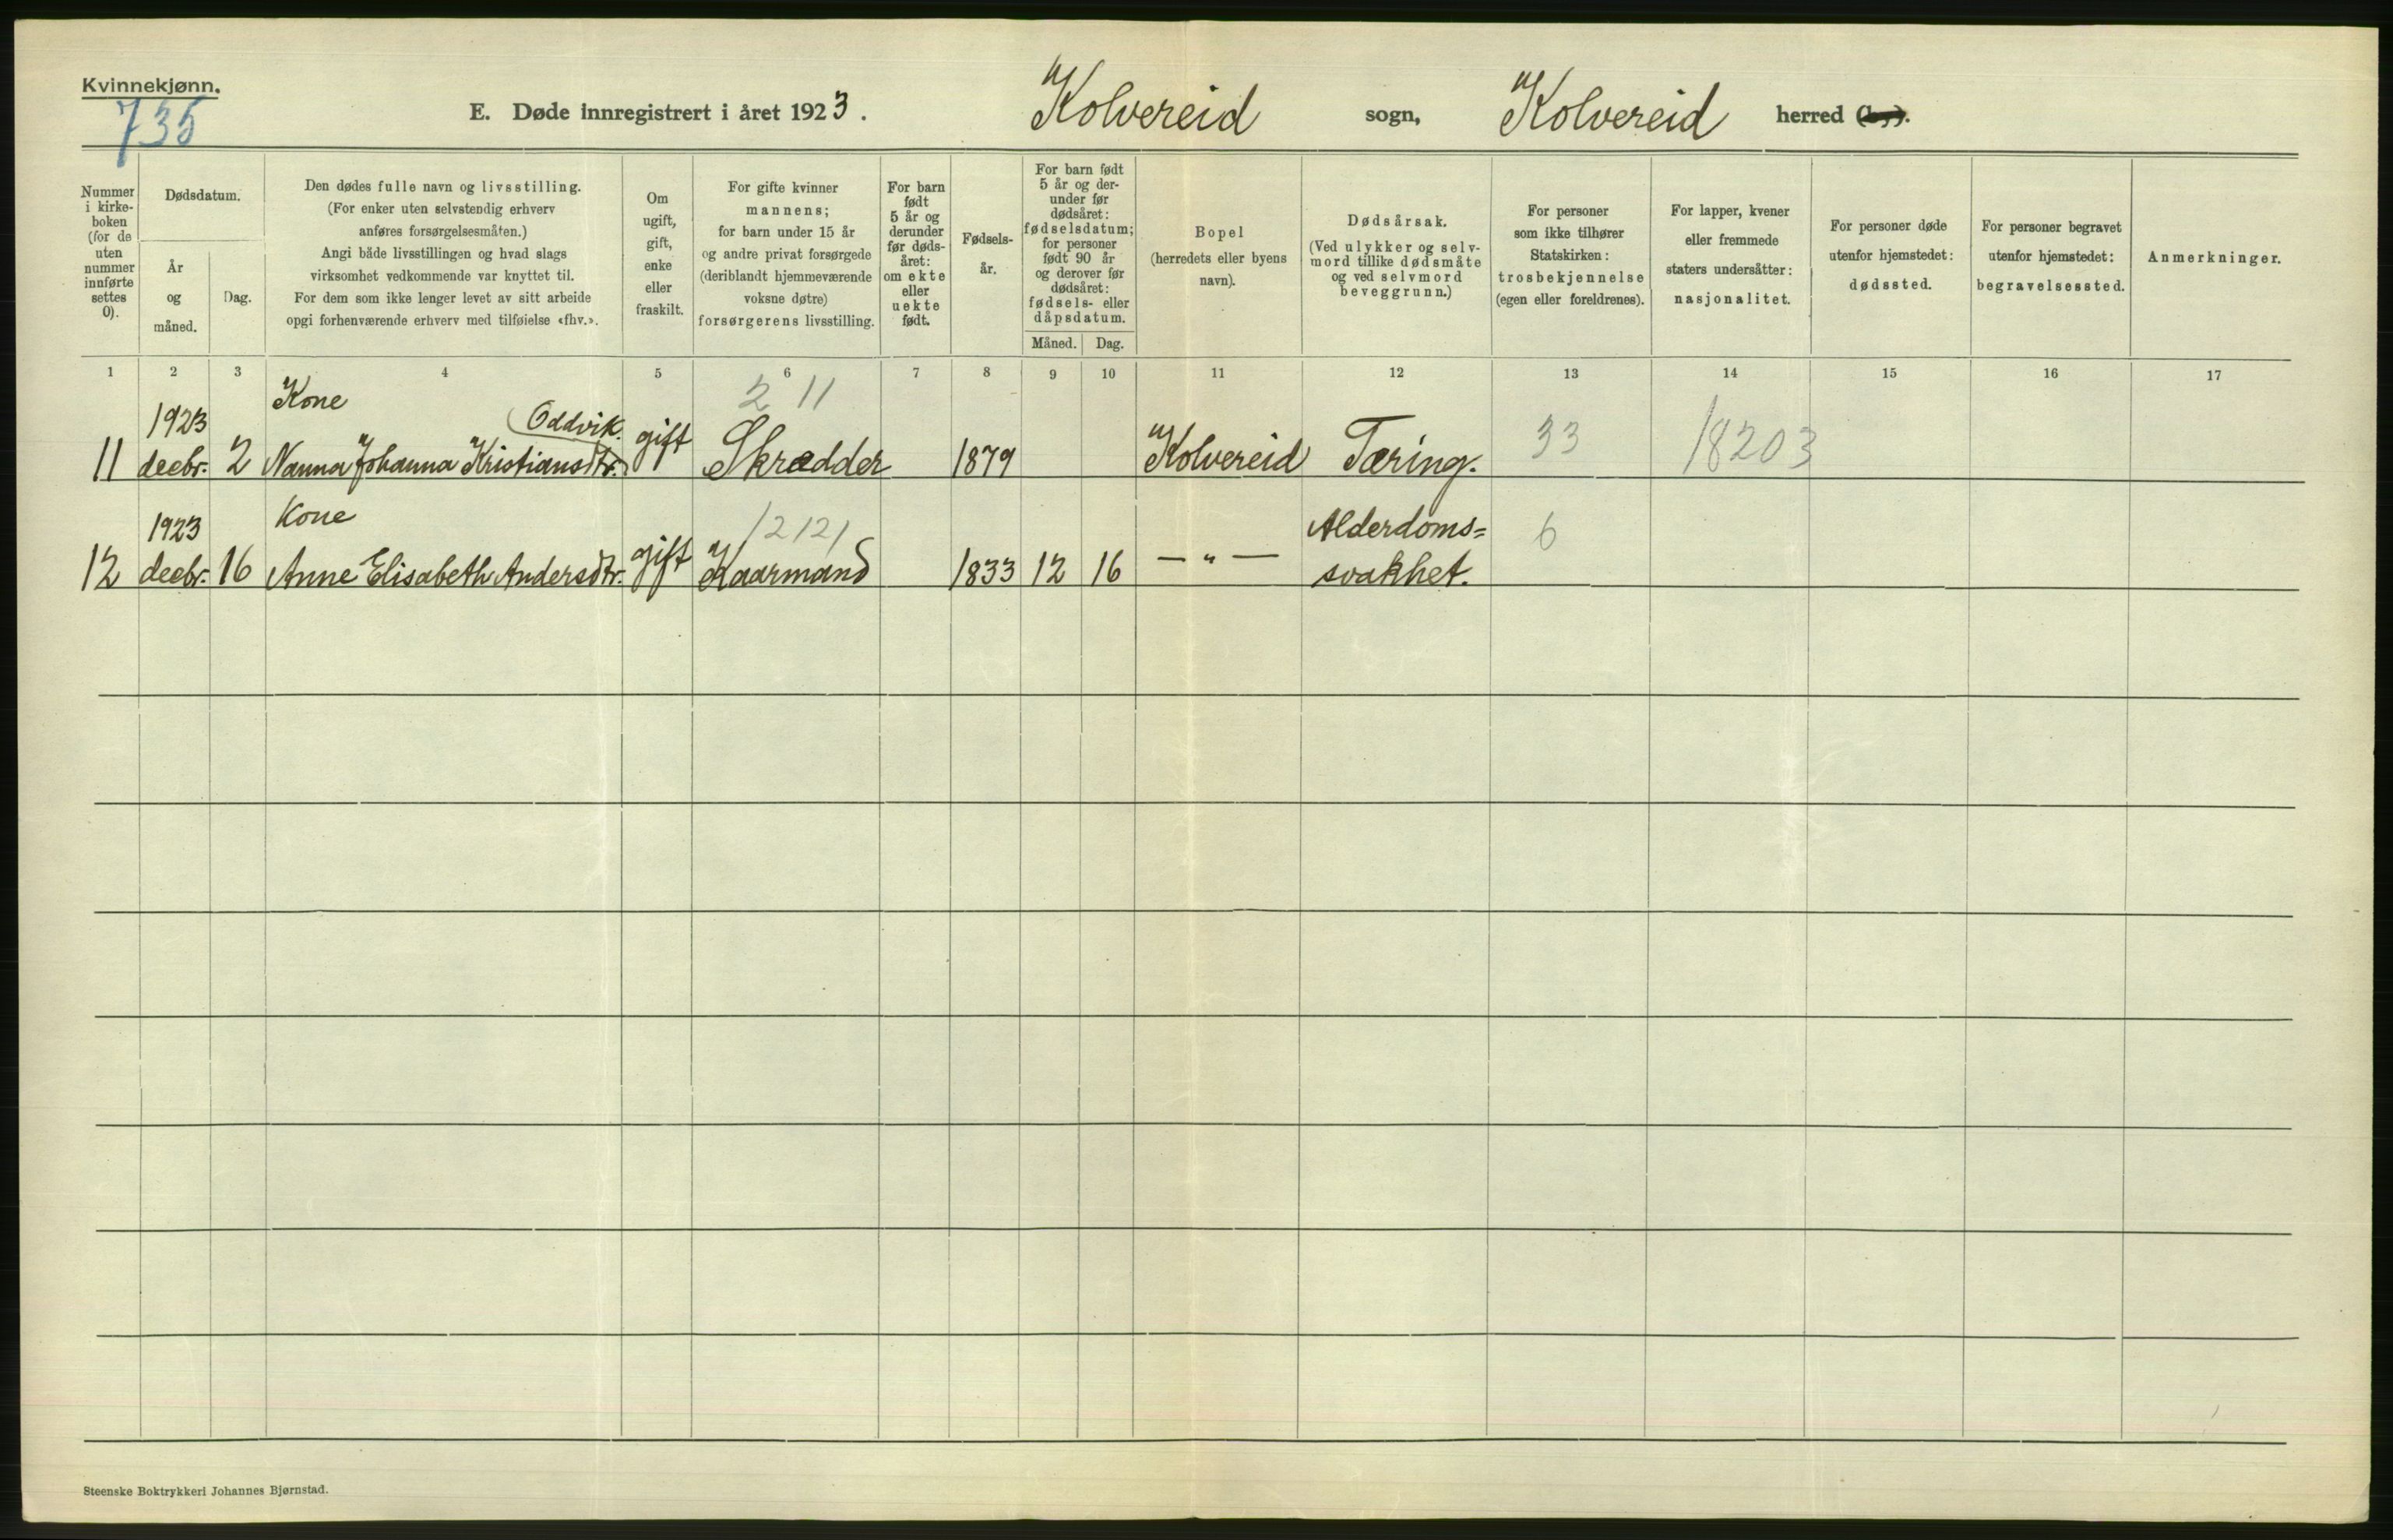 Kvinnekjønn.
735
E. Døde innregistrert i året 1923. Kolvereid sogn, Kolvereid herred
Nummer
i kirke-
boken
(for de
uten
nummer
innførte
settes
0).
Dødsdatum.
År
og
måned.
Dag.
Den dødes fulle navn og livsstilling.
(For enker uten selvstendig erhverv
anføres forsørgelsesmåten.)
Angi både livsstillingen og hvad slags
virksomhet vedkommende var knyttet til.
For dem som ikke lenger levet av sitt arbeide
opgi forhenværende erhverv med tilføielse «fhv.».
Om
ugift,
gift,
enke
eller
fraskilt.
For gifte kvinner
mannens;
for barn under 15 år
og andre privat forsørgede
(deriblandt hjemmeværende
voksne døtre)
forsørgerens livsstilling.
For barn
født
5 år og
derunder
før døds-
året:
om ekte
eller
uekte
født.
Fødsels-
år.
For barn født
5 år og der-
under før
dødsåret:
fødselsdatum;
for personer
født 90 år
og derover før
dødsåret:
fødsels- eller
dåpsdatum.
Måned. Dag.
Bopel
(herredets eller byens
navn).
Dødsårsak.
(Ved ulykker og selv-
mord tillike dødsmåte
og ved selvmord
beveggrunn.)
For personer
som ikke tilhører
Statskirken:
trosbekjennelse
(egen eller foreldrenes).
For lapper, kvener
eller fremmede
staters undersåtter:
nasjonalitet.
For personer døde
utenfor hjemstedet:
dødssted.
For personer begravet
utenfor hjemstedet:
begravelsessted.
Anmerkninger.
1 2 3 4 5 6 7 8 9 10 11 12 13 14 15 16 17
Kone 2 11
1923 (Oddvik.
11 decbr. 2 Nanna Johanna Kristiansdtr.) gift Skrædder 1879 Kolvereid Tæring. 33 18203
1923 Kone 12121 Alderdoms= 6
12 decbr. 16 Anne Elisabeth Andersdtr. gift Kaarmand 1833 12 16 — " — svakhet.
Steenske Boktrykkeri Johannes Bjørnstad.